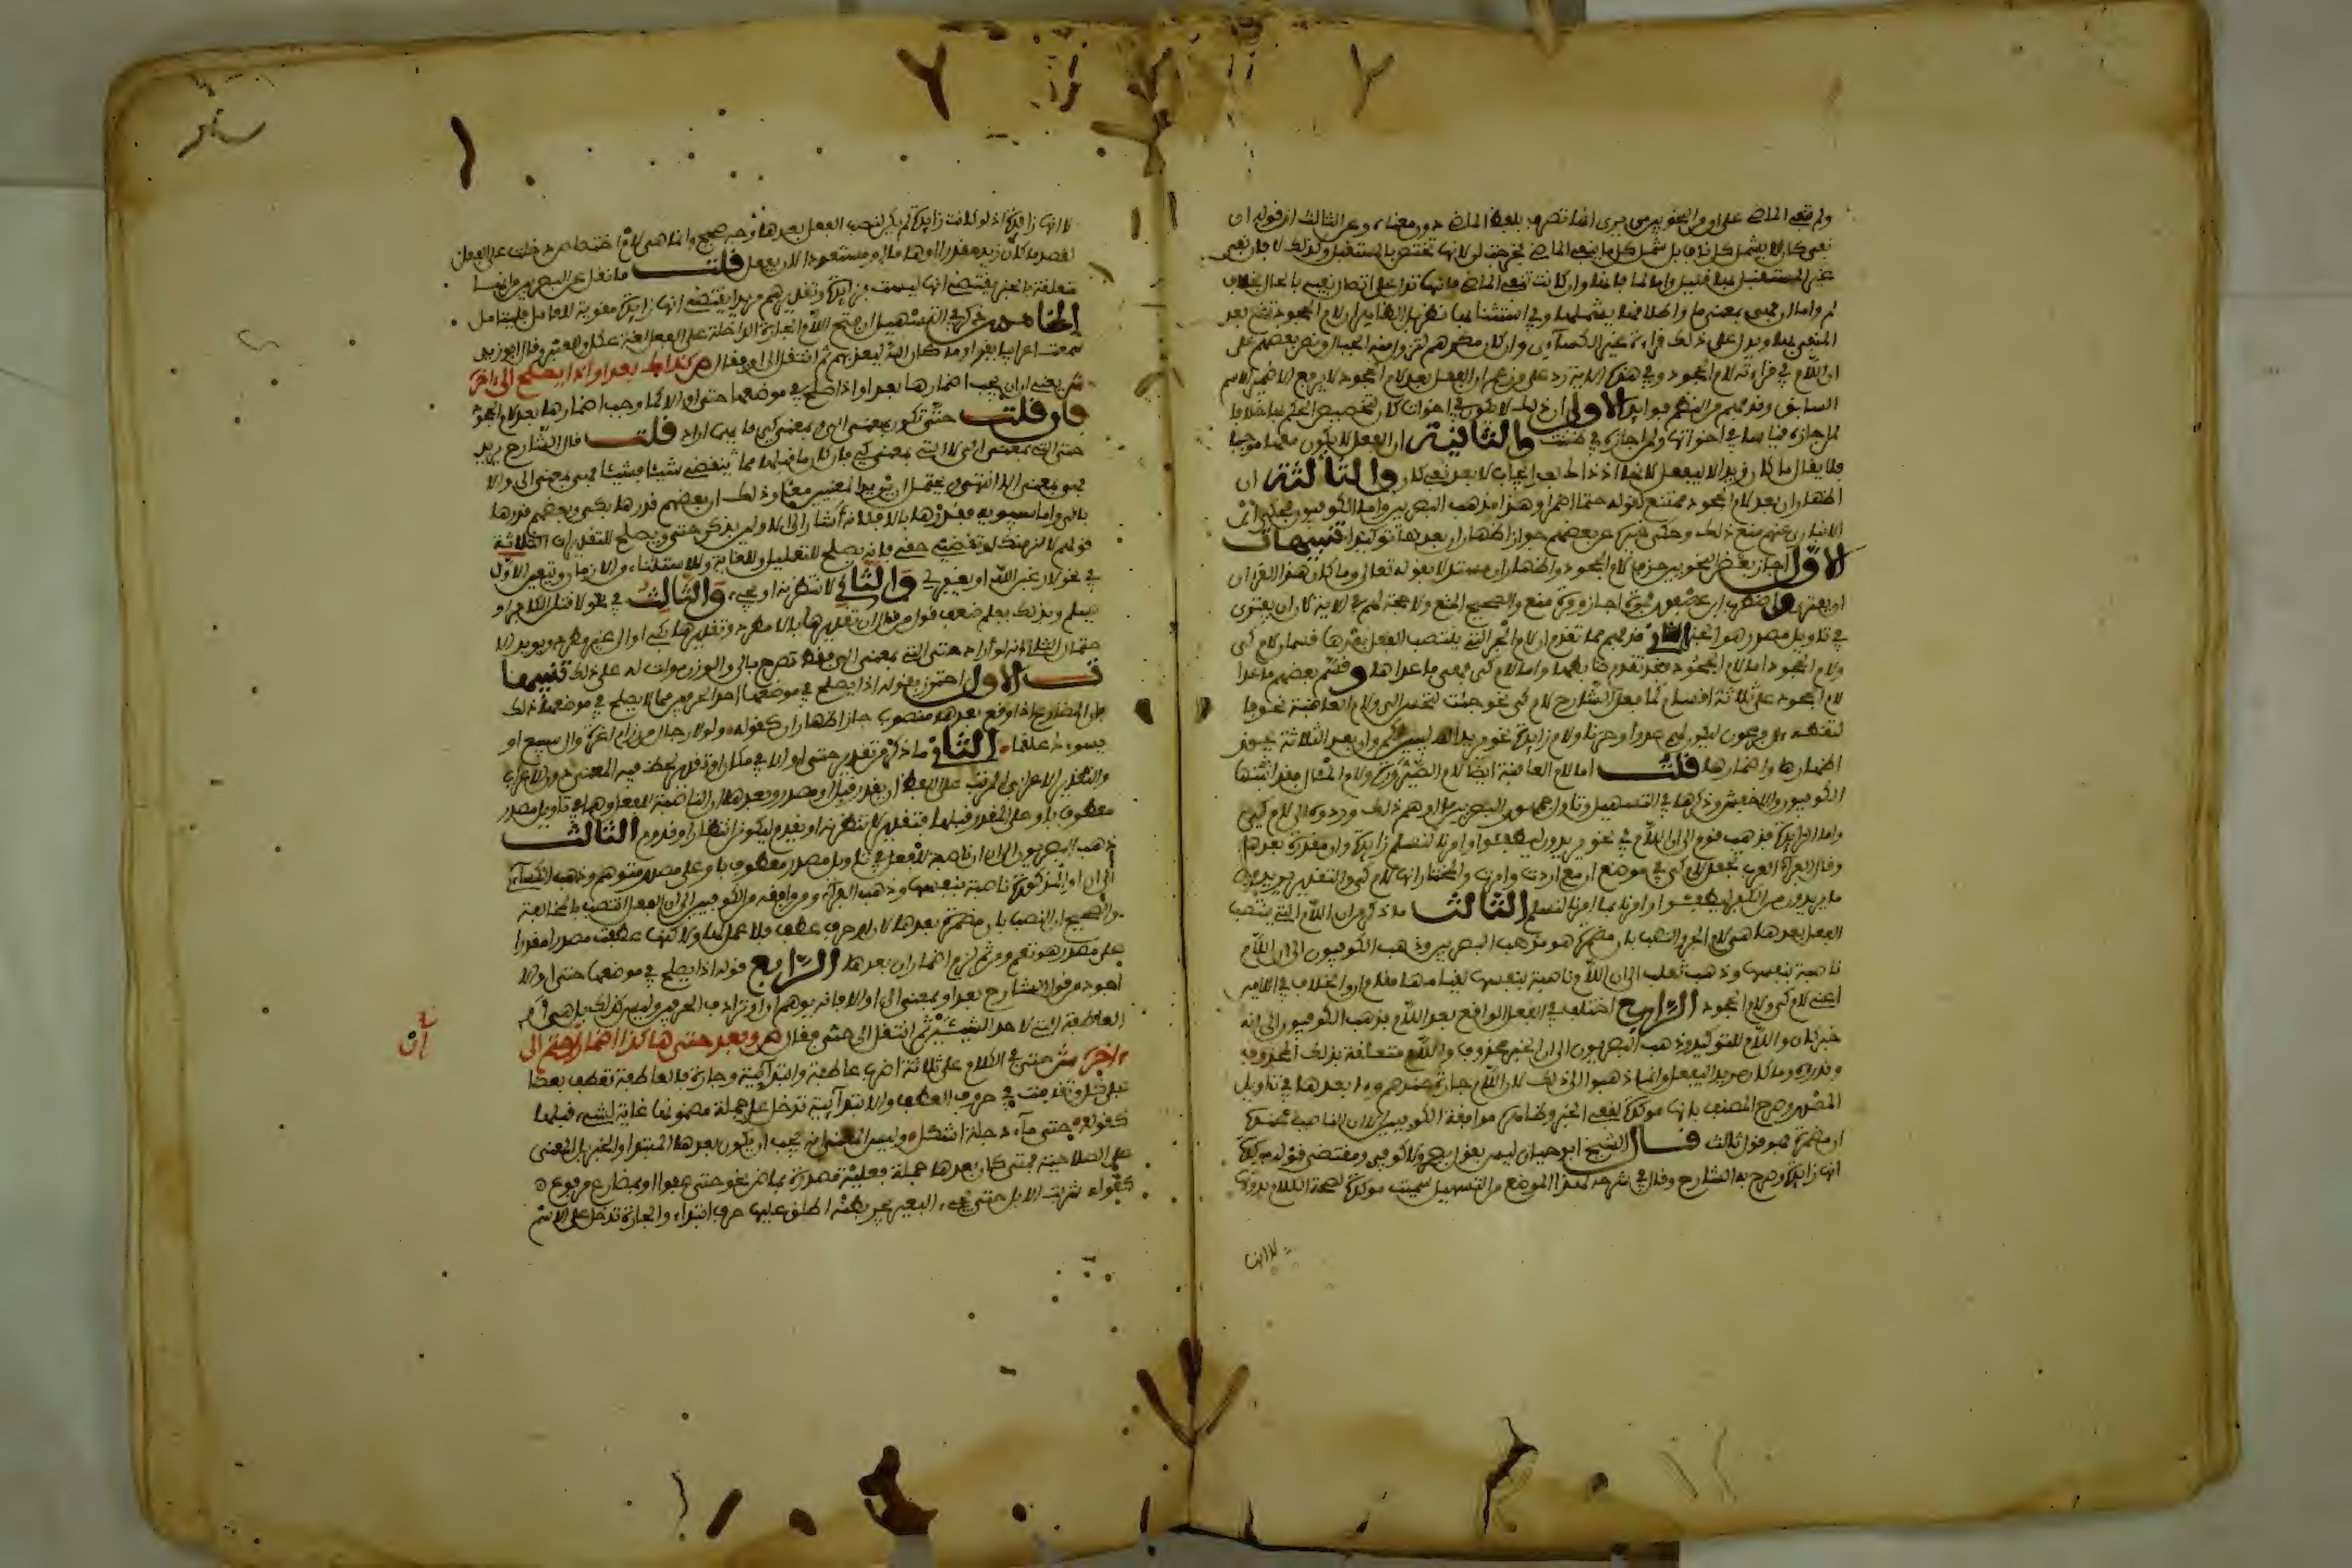 ولم تنف الماضي على ان من النحويين من يرى انها تصرف لفظ الماضي دون معناه وعن الثالث ان قوله ان
نفي كان لا يشمل كل ناف بل شمل كل ما ينفي الماضي فخرجت لن لانها تختص بالمستقبل وكذلك لا لان نفي
غير المستقبل بها قليل واما لما فانها وان كانت تنفي الماضي فانها تدل على اتصال نفيه بالحال
لم واما ان فهي بمعنى ما واطلاقه يشملها
المنفي بها ويدل على ذلك قراءة غير الكسائي وان كان مكرهم لتزول منه الجبال ونص بعضهم على
ان اللام في قراءته لام الجحود وفي هذه الاية رد على من زعم ان الفعل بعد لام الجحود لا يرفع الا ضمير الاسم
السابق وقد فهم من النظم فوائد الاولى ان ذلك لا يكون في اخوات كان لتخصيص الحكم بها خلافا
لمن اجازه قياسا في اخواتها ولمن اجازه في ظننت والثانية ان الفعل لا يكون معها موجبا
فلا يقال ما كان زيد الا ليفعل لانها اذ ذاك بعد ايجاب لا بعد نفي كان والثالثة ان
اظهار ان بعد لام الجحود ممتنع لقوله حتما اضمرا وهذا مذهب البصريين واما الكوفيون فحكى ابن
الانباري عنهم منع ذلك وحكى غيره عن بعضهم جواز اظهار ان بعدها توكيدا تنبيهات
الاول اجاز بعض النحويين حذف لام الجحود واظهار ان مستدلا بقوله تعالى وما كان هذا القران ان
يفترى
في تاويل مصدر هو الخبر الثاني قد فهم مما تقدم ان لام الجر التي ينتصب الفعل بعدها قسمان لام كي
ولام الجحود اما لام الجحود فقد تقدم ضابطها واما لام كي فهي ما عداها وقسم بعضهم ما عدا
لام الجحود على ثلاثة اقسام كما فعل الشارح لام كي نحو جئت لتحسن الي ولام العاقبة نحو فا
لتقطه ال فرعون ليكون لهم عدوا وحزنا ولام زائدة نحو يريد الله ليبين لكم وان بعد الثلاثة يجوز
اظهارها واضمارها قلت اما لام العاقبة ايضا لام الصيرورة ولام المآل فقد اثبتها
الكوفيون والاخفش وذكرها في التسهيل وتاول جمهور البصريين ما اوهم ذلك وردوه الى لام كي
واما الزائدة فذهب قوم الى ان اللام في نحو يريدون ليطفئوا وامرنا لنسلم زائدة وان مقدرة بعدها
وقال الفراء العرب تجعل لام كي في موضع ان مع اردت وامرت والمختار انها لام كي والتقدير
ما يريدون من الكفر ليطفئوا وامرنا بما امرنا لنسلم الثالث ما ذكره من ان اللام التي ينتصب
الفعل بعدها هي لام الجر والنصب بان مضمرة هو مذهب البصريين وذهب الكوفيون الى ان اللام
ناصبة بنفسها وذهب ثعلب الى ان اللام ناصبة بنفسها لقيامها مقام ان والخلاف في اللامين
اعني لام كي ولام الجحود الرابع اختلف في الفعل الواقع بعد اللام فذهب الكوفيون الى انه
خبر كان واللام للتوكيد وذهب البصريون الى ان الخبر محذوف واللام متعلقة بذلك المحذوف
وقدروه وما كان مريدا ليفعل وانما ذهبوا الى ذلك لان اللام جارة عندهم وما بعدها في تاويل
المصدر وصرح المصنف بانها موكدة لنفي الخبر وظاهره موافقة الكوفيين الا ان الناصب عنده
ان مضمرة فهو قول ثالث قال الشيخ ابو حيان ليس بقول بصري ولا كوفي ومقتضى قوله موكدة
انها زائدة وصرح به الشارح وقال في شرحه لهذا الموضع من التسهيل سميت موكدة لصحة الكلام بدونها
لا انها
لا انها زائدة اذ لو كانت زائدة لم يكن لنصب الفعل بعدها وجه صحيح وانما هي لام اختصاص دخلت على الفعل
لقصد ما كان زيد مقدرا او هاما او مستعدا لان يفعل قلت ما نقل عن البصريين من انها
متعلقة بالخبر يقتضي انها ليست بزائدة وتقديرهم مريدا يقتضي انها زائدة مقوية للعامل فليتامل
الخامس ذكر في التسهيل ان فتح اللام الجارة الداخلة على الفعل لغة عكل وبلعنبر وقال ابو زيد
سمعت اعرابيا يقول وما كان الله ليعذبهم ثم انتقل الى او فقال ص كذاك بعد او اذا يصلح الى اخره
ش يعني ان ان يجب اضمارها بعد او اذا صلح في موضعها حتى او الا كما وجب اضمارها بعد لام الجحود
فان قلت حتى تكون بمعنى الى وبمعنى كي فايهما اراد قلت قال الشارح يريد
حتى التي بمعنى الى لا التي بمعنى كي فان كان ما قبلها مما ينقضي شيئا فشيئا فهي بمعنى الى والا
فهي بمعنى الا انتهى ويحتمل ان يريد المعنيين معا وذلك ان بعضهم قدرها بكي وبعضهم قدرها
بالى واما سيبويه فقدرها بالا
قولهم لالزمنك او تقضيني حقي فانه يصلح للتعليل وللغاية وللاستثناء من الازمان ويتعين الاول
في نحو لارضين الله او يغفر لي والثاني لانتظرنه او يجيء والثالث في نحو لاقتلن الكافر او
يسلم وبذلك يعلم ضعف قول من قال ان تقديرها بالا مطرد وتقديرها بكي او الى غير مطرد
تنبيهات الاول احترز بقوله اذا يصلح في موضعها احد الحرفين مما لا يصلح في موضعها ذلك
فان المضارع اذا وقع بعدها منصوبا جاز اظهار ان كقوله ولولا رجال من رزام اعزة وال سبيع او
يسوءك علقما الثاني ما ذكر من تقدير حتى او الا في مكان او تقدير لحظ فيه المعنى دون الاعراب
والتقدير الاعرابي المرتب على اللفظ ان يقدر قبل او مصدر وبعدها ان الناصبة للفعل وهما في تاويل مصدر
معطوف باو على المقدر قبلها فتقدير لانتظرنه او يقدم ليكونن انتظار او قدوم الثالث
ذهب البصريون الى ان ان ناصبة للفعل في تاويل مصدر معطوف باو على مصدر متوهم وذهب الكسائي
الى ان او المذكورة ناصبة بنفسها وذهب الفراء ومن وافقه من الكوفيين الى ان الفعل انتصب بالمخالفة
والصحيح ان النصب بان مضمرة بعدها لان او حرف عطف فلا عمل لها ولكنها عطفت مصدرا مقدرا
على مصدر متوهم ومن ثم لزم اضمار ان بعدها الرابع قوله اذا يصلح في موضعها حتى او الا
اجود من قول الشارح بعد او بمعنى الى او الا فانه يوهم ان او ترادف الحرفين وليس كذلك بل هي او
العاطفة التي لاحد الشيئين ثم انتقل الى حتى فقال ص وبعد حتى هاكذا اضمار ان حتم الى
اخره ش حتى في الكلام على ثلاثة اضرب عاطفة وابتدائية وجارة فالعاطفة تعطف بعضا
على كل وتقدمت في حروف العطف والابتدائية تدخل على جملة مضمونها غاية لشيء قبلها
كقوله حتى ماء دجلة اشكل وليس المعنى انه يجب ان يكون بعدها المبتدا والخبر بل المعنى
على الصلاحية فمتى كان بعدها جملة فعلية مصدرة بماض نحو حتى عفوا او بمضارع مرفوع
كقولك شربت الابل حتى يجيء البعير يجر بطنه اطلق عليها حرف ابتداء والجارة تدخل على الاسم